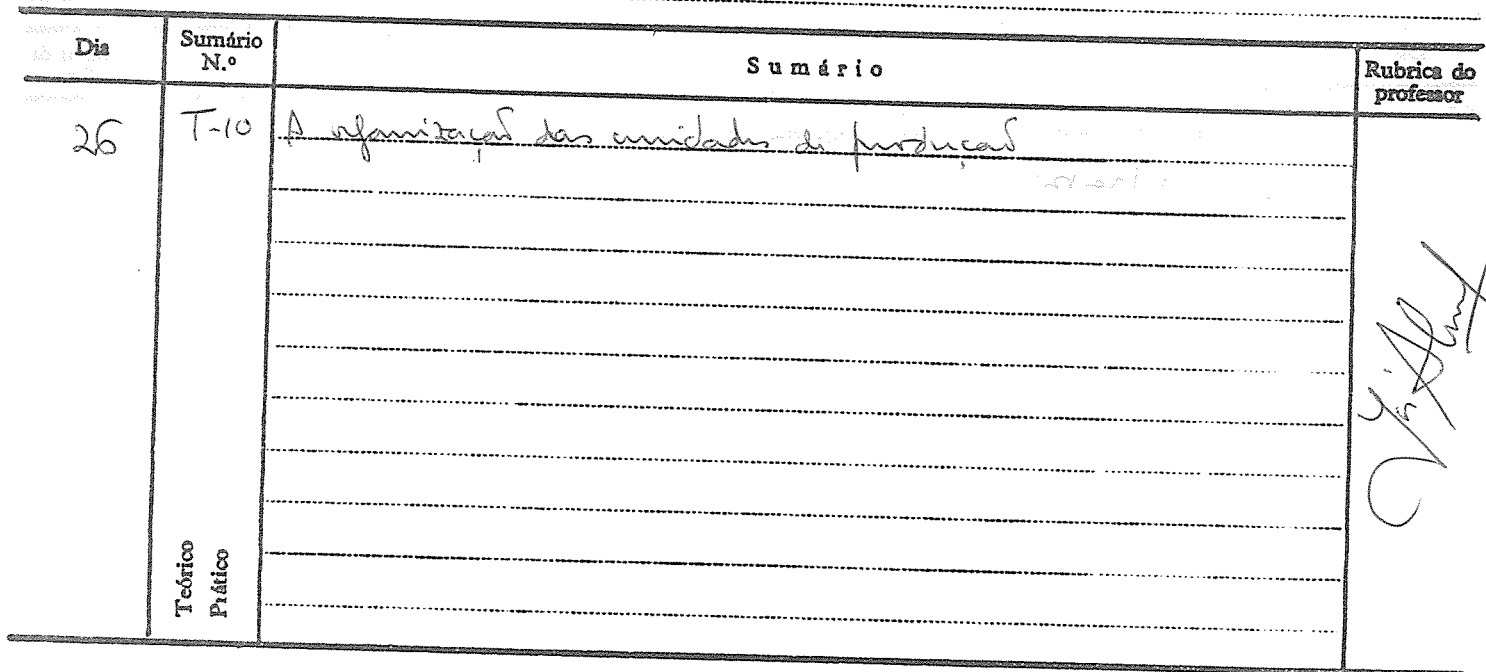 Dia
Sumário N.º
Sumário
Rubrica do professor
26
T-10
A organização das unidades de produção
Teórico
Prático